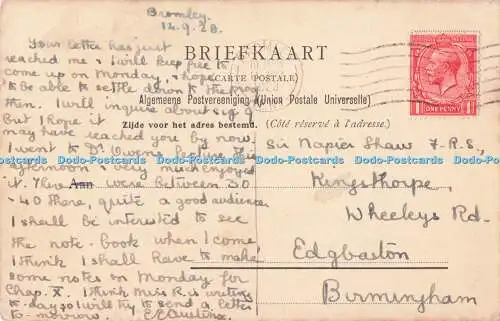 Bromley.
12.9.28.
Your letter has just
reached me & I will keep free to
come up on Monday, & hope
to be able to settle down to the prog
then. I will inquire about sig 9
But I hope it
may have reached you by now
I went to D. Owens lecture this
afternoon & very much enjoyed
it. There were between 30
- 40 there, quite a good audience
I shall be interested to see
the note-book when I come,
I think I shall have to make
some notes on Monday for
Chap. X. I think Miss R. is writing
to-day so I will try to send a letter
to-morrow. E.E. Austin.
BRIEFKAART
(CARTE POSTALE)
Algemeene Postvereeniging (Union Postale Universelle)
Zijde voor het adres bestemd. (Côté réservé à l'adresse.)
POSTAGE
ONE PENNY
Sir Napier Shaw F.R.S.,
Kingsthorpe,
Wheeleys Rd.
Edgbaston
Birmingham
Dodo-Postcards Dodo-Postcards Dodo-Postcards Dodo-Postcards Dodo-Postcards Dodo-Postcards